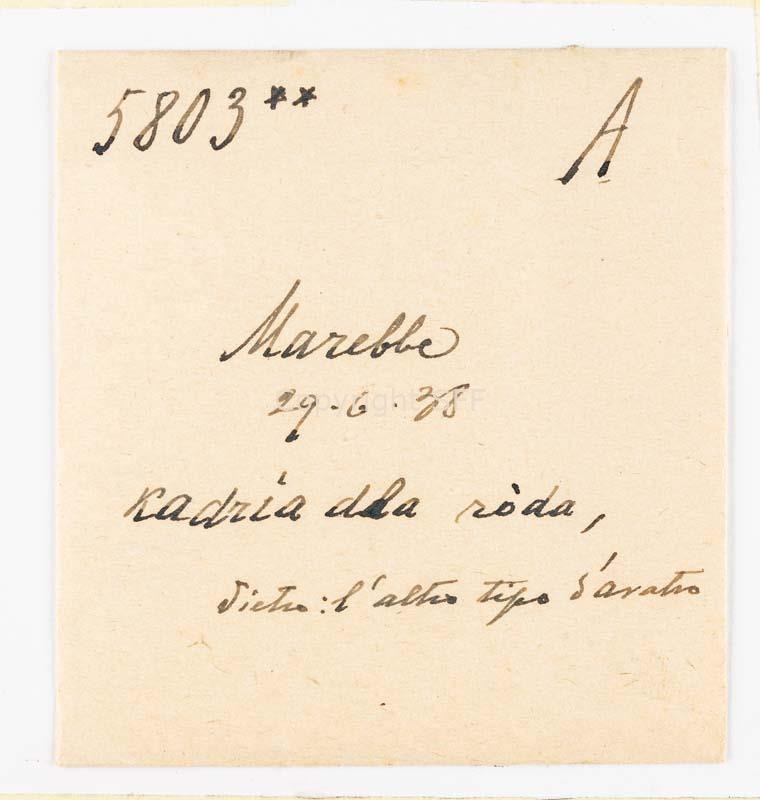 5803** A
Marebbe
29-6.38
kadría dla ròda,
dietro: l'altro tipo d'aratro